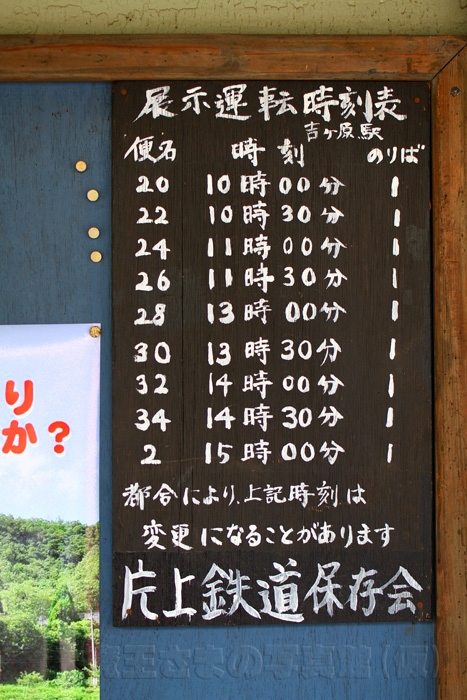 展示運転時刻表
吉ヶ原駅
便名 時刻 のりば
20 10時00分 1
22 10時30分 1
24 11時00分 1
26 11時30分 1
28 13時00分 1
30 13時30分 1
32 14時00分 1
34 14時30分 1
2 15時00分 1
都合により、上記時刻は
変更になることがあります
片上鉄道保存会
り
か?
王さまの写真館(仮)